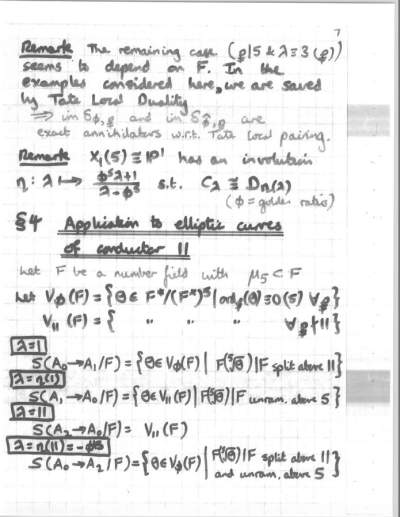 7
Remark The remaining case (𝔭|5 & λ≡3 (𝔭))
seems to depend on F. In the
examples considered here, we are saved
by Tate Local Duality
⇒ im δφ,𝔭 and im δφ̂,𝔭 are
exact annihilators w.r.t. Tate local pairing.
Remark X₁(5) ≅ ℙ¹ has an involution
η: λ ↦ (φ⁵λ+1)/(λ-φ⁵) s.t. Cλ ≅ Dη(λ)
(φ = golden ratio)
§4 Application to elliptic curves
of conductor 11
Let F be a number field with μ₅ ⊂ F
Let Vφ(F) = {θ ∈ F*/(F*)⁵ | ord𝔭(θ) ≡ 0 (5) ∀𝔭}
V₁₁(F) = { " " " ∀𝔭∤11}
λ=1
S(A₀→A₁/F) = {θ ∈ Vφ(F) | F(⁵√θ)|F split above 11}
λ=η(1)
S(A₁→A₀/F) = {θ ∈ V₁₁(F) | F(⁵√θ)|F unram. above 5}
λ=11
S(A₂→A₀/F) = V₁₁(F)
λ=η(11)=
S(A₀→A₂/F) = {θ ∈ Vφ(F) | F(⁵√θ)|F split above 11
and unram. above 5}